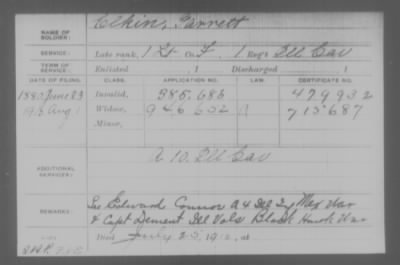 NAME OF SOLDIER: Elkin, Garrett
SERVICE: Late rank, 1 Lt Co. F, 1 Reg't Ill Cav
TERM OF SERVICE: Enlisted , 1 Discharged , 1
DATE OF FILING. CLASS. APPLICATION NO. LAW. CERTIFICATE NO.
1887 June 23 Invalid, 385,686 479932
Aug 1 Widow, 946602 713687
Minor,
A 10. Ill Cav
ADDITIONAL SERVICES:
REMARKS: See Edward Connor A 4 Ill Mex War
& Capt Dement Ill Vols Black Hawk War
Died July 25, 1910, at